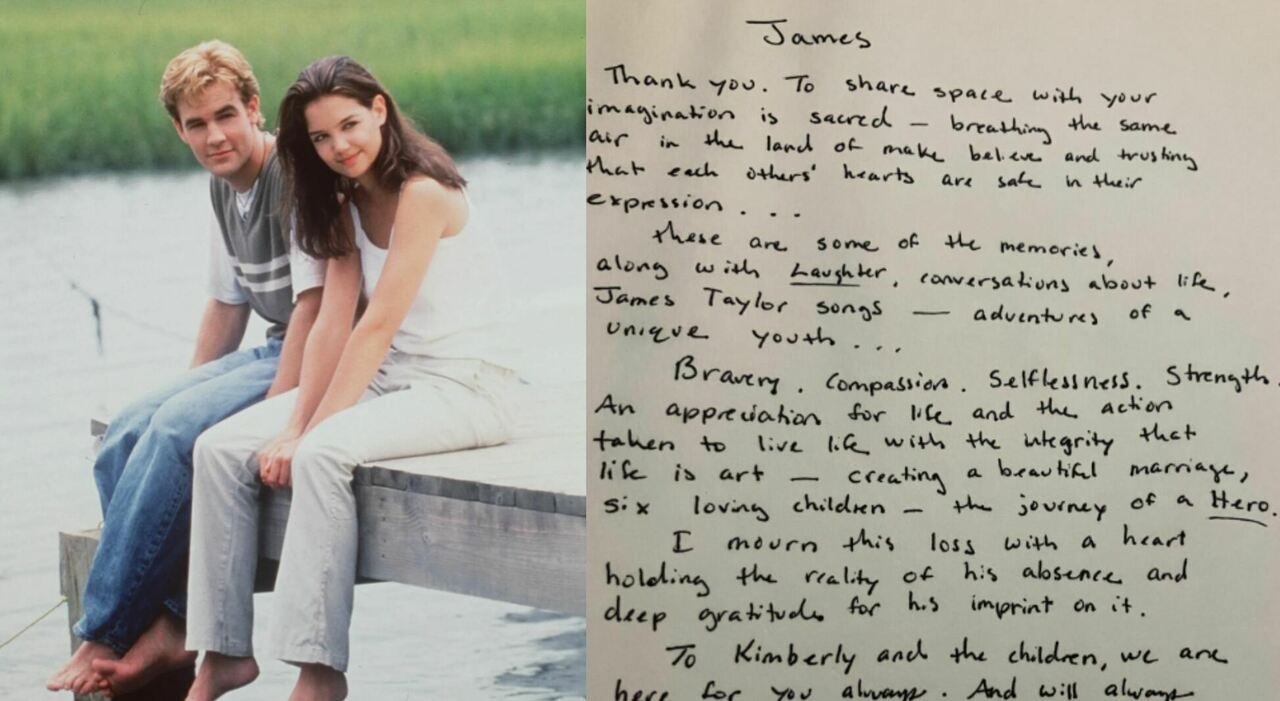 James
Thank you. To share space with your
imagination is sacred — breathing the same
air in the land of make believe and trusting
that each others' hearts are safe in their
expression . . .
these are some of the memories,
along with Laughter, conversations about life,
James Taylor songs — adventures of a
unique youth . . .
Bravery. Compassion. Selflessness. Strength.
An appreciation for life and the action
taken to live life with the integrity that
life is art — creating a beautiful marriage,
six loving children — the journey of a Hero.
I mourn this loss with a heart
holding the reality of his absence and
deep gratitude for his imprint on it.
To Kimberly and the children, we are
here for you always. And will always